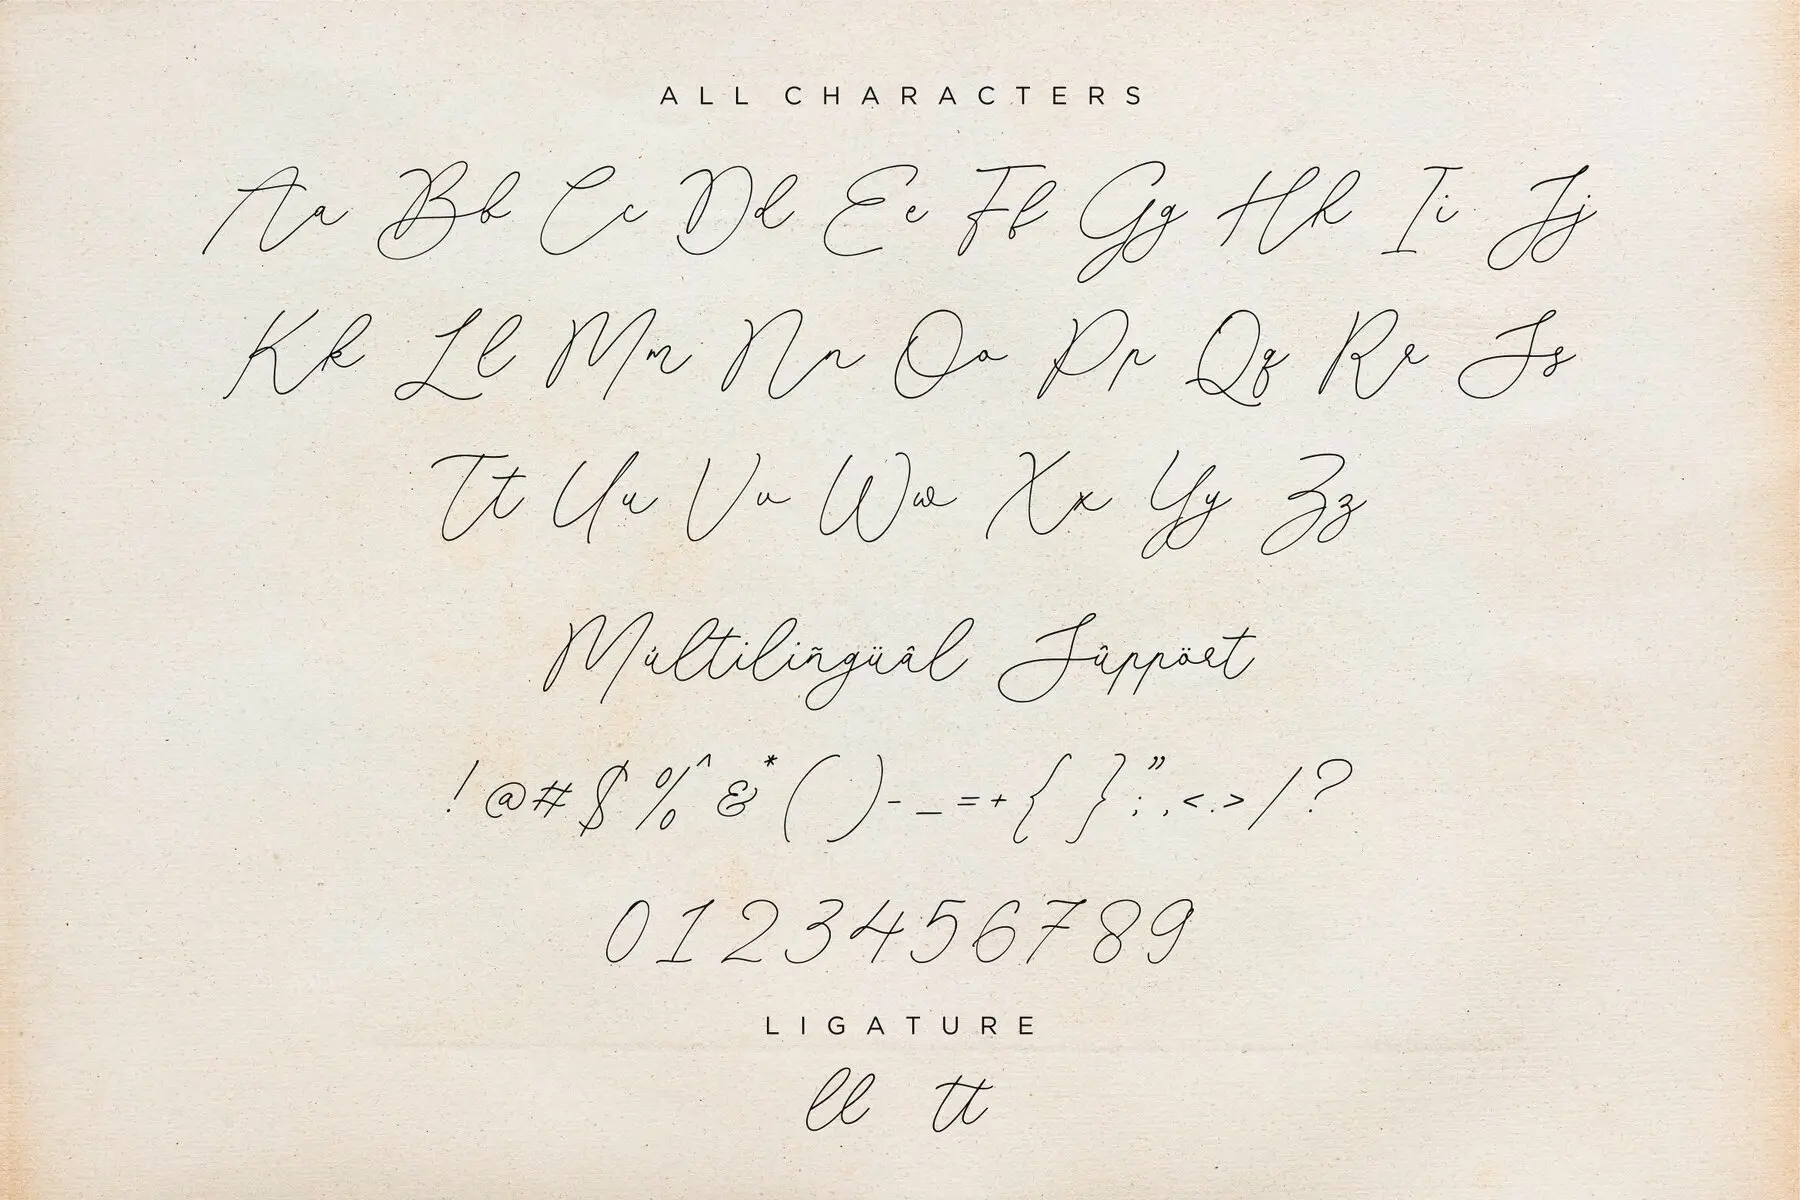 ALL CHARACTERS
Aa Bb Cc Dd Ee Ff Gg Hh Ii Jj
Kk Ll Mm Nn Oo Pp Qq Rr Ss
Tt Uu Vv Ww Xx Yy Zz
Múltiliñgüâl Sûppört
! @ # $ % ^ & * ( ) - _ = + { } ; ” , < . > / ?
0 1 2 3 4 5 6 7 8 9
LIGATURE
ll tt